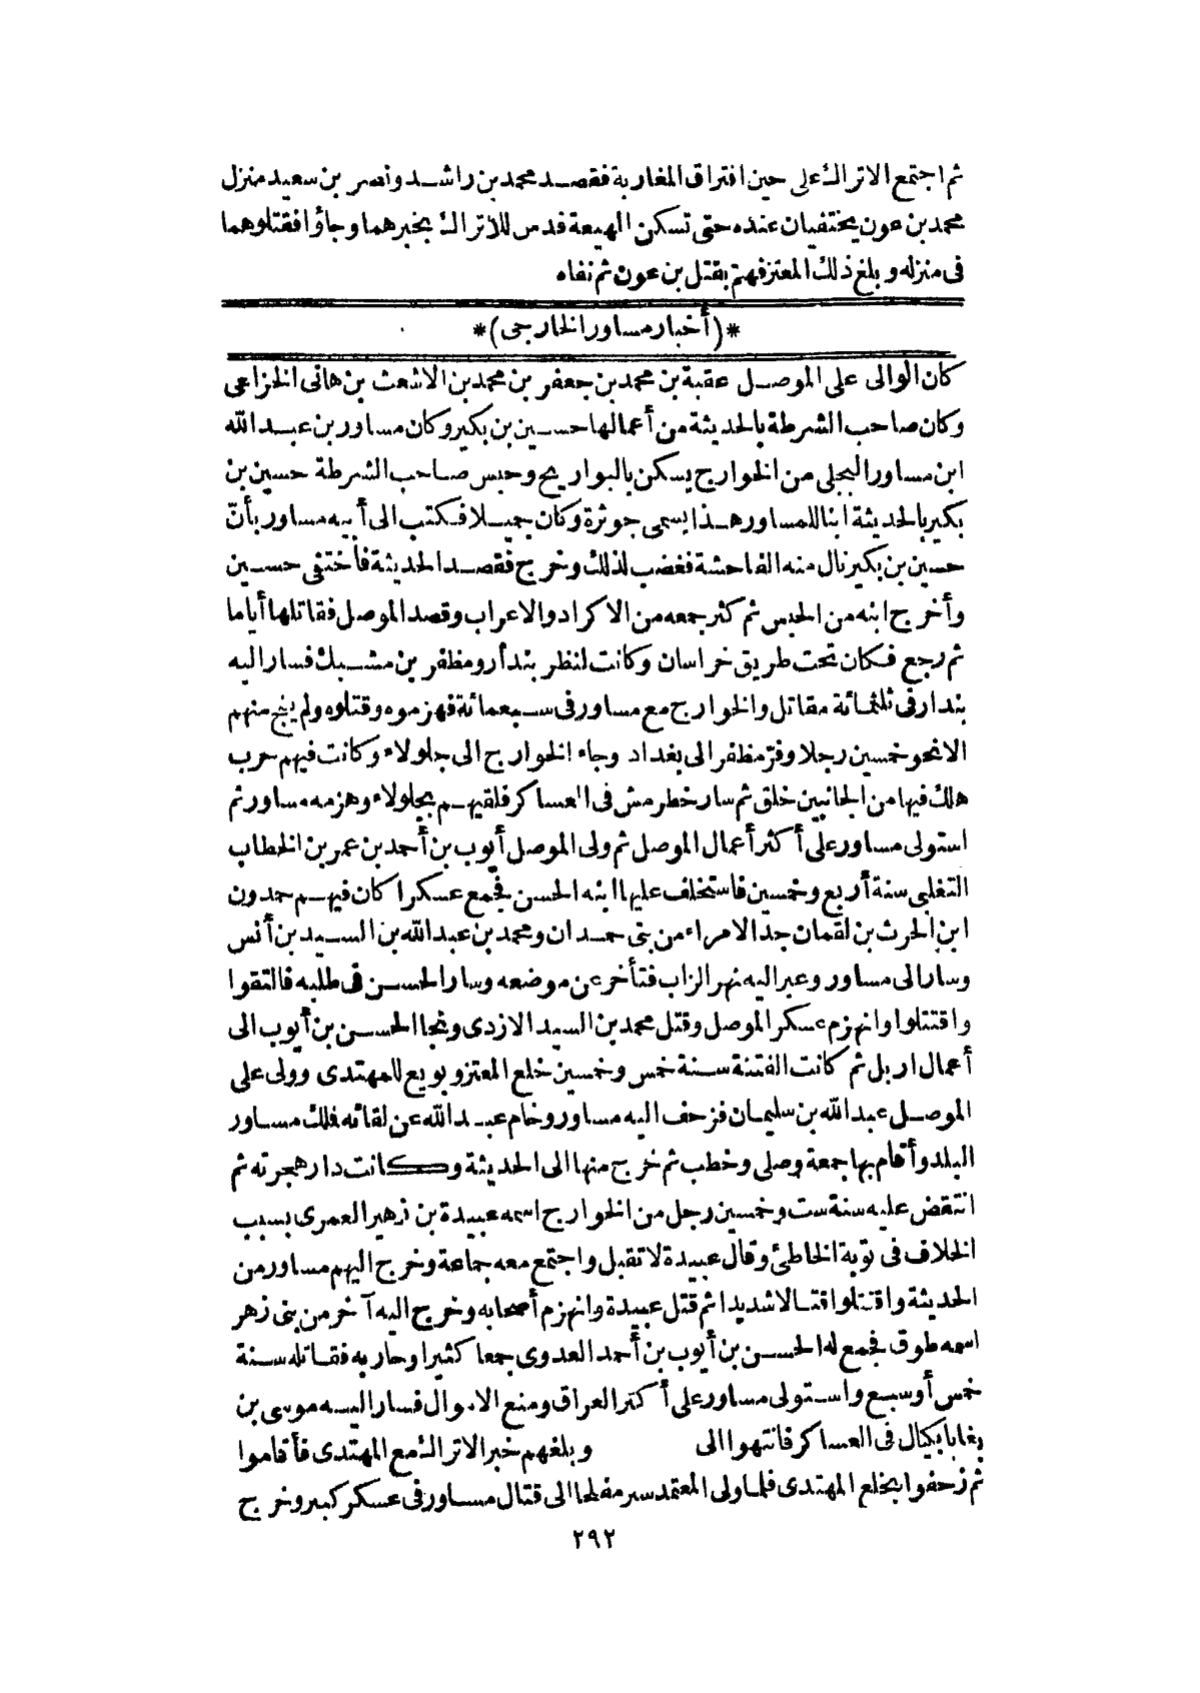 ثم اجتمع الاتراك على حين افتراق المغاربة فقصد محمد بن راشد ونصر بن سعيد منزل
محمد بن عون يختفيان عنده حتى تسكن الهيعة فدس للاتراك بخبرهما وجاؤا فقتلوهما
فى منزله وبلغ ذلك المعتز فهمّ بقتل بن عون ثم نفاه
*(أخبار مساور الخارجى)*
كان الوالى على الموصل عقبة بن محمد بن جعفر بن محمد بن الاشعث بن هانى الخزاعى
وكان صاحب الشرطة بالحديثة من أعمالها حسين بن بكير وكان مساور بن عبد الله
ابن مساور البجلى من الخوارج يسكن بالبواريج وحبس صاحب الشرطة حسين بن
بكير بالحديثة ابنا للمساور هذا يسمى جوثرة وكان جميلا فكتب الى أبيه مساور بأنّ
حسين بن بكير نال منه الفاحشة فغضب لذلك وخرج فقصد الحديثة فأختفى حسين
وأخرج ابنه من الحبس ثم كثر جمعه من الاكراد والاعراب وقصد الموصل فقاتلها أياما
ثم رجع فكان تحت طريق خراسان وكانت لنظر بندار ومظفر بن مشبك فسار اليه
بندار فى ثلثمائة مقاتل والخوارج مع مساور فى سبعمائة فهزموه وقتلوه ولم ينج منهم
الا نحو خمسين رجلا وفرّ مظفر الى بغداد وجاء الخوارج الى جلولاء وكانت فيهم حرب
هلك فيها من الجانبين خلق ثم سار خطرمش فى العساكر فلقيهم بجلولاء وهزمه مساور ثم
استولى مساور على أكثر أعمال الموصل ثم ولى الموصل أيوب بن أحمد بن عمر بن الخطاب
التغلبى سنة أربع وخمسين فاستخلف عليها ابنه الحسن فجمع عسكرا كان فيهم حمدون
ابن الحرث بن لقمان جدّ الامراء من بنى حمدان ومحمد بن عبد الله بن السيد بن أنس
وسار الى مساور وعبر اليه نهر الزاب فتأخر عن موضعه وسار الحسن فى طلبه فالتقوا
واقتتلوا وانهزم عسكر الموصل وقتل محمد بن السيد الازدى ونجا الحسن بن أيوب الى
أعمال اربل ثم كانت الفتنة سنة خمس وخمسين خلع المعتز وبويع للمهتدى وولى على
الموصل عبد الله بن سليمان فزحف اليه مساور وخام عبد الله عن لقائه فلك مساور
البلد وأقام بها جمعة وصلى وخطب ثم خرج منها الى الحديثة وكانت دار هجرته ثم
انتقض عليه سنة ست وخمسين رجل من الخوارج اسمه عبيدة بن زهير العمرى بسبب
الخلاف فى توبة الخاطئ وقال عبيدة لا تقبل واجتمع معه جماعة وخرج اليهم مساور من
الحديثة واقتتلوا قتالا شديدا ثم قتل عبيدة وانهزم أصحابه وخرج اليه آخر من بنى زهر
اسمه طوق فجمع له الحسن بن أيوب بن أحمد العدوى جمعا كثيرا وحاربه فقاتله سنة
خمس أوسبع واستولى مساور على أكثر العراق ومنع الاموال فسار اليه موسى بن
بغا بابكيال فى العساكر فانتهوا الى وبلغهم خبر الاتراك مع المهتدى فأقاموا
ثم زحفوا بخلع المهتدى فلما ولى المعتمد سير مفلحا الى قتال مساور فى عسكر كبير وخرج
٢٩٢